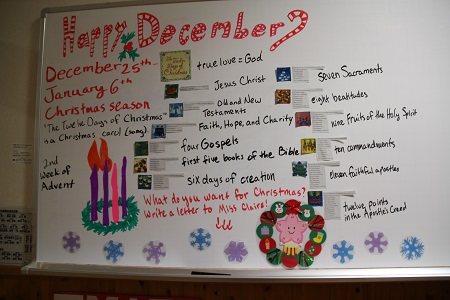 Happy December!
December 25th -
January 6th
Christmas season
"The Twelve Days of Christmas"
is a Christmas carol (song)
2nd
Week of
Advent
true love = God
Jesus Christ
Old and New
Testaments
Faith, Hope, and Charity
four Gospels
first five books of the Bible
six days of creation
seven Sacraments
eight beatitudes
nine Fruits of the Holy Spirit
ten commandments
eleven faithful apostles
twelve points
in the Apostle's Creed
What do you want for Christmas?
Write a letter to Miss Claire!